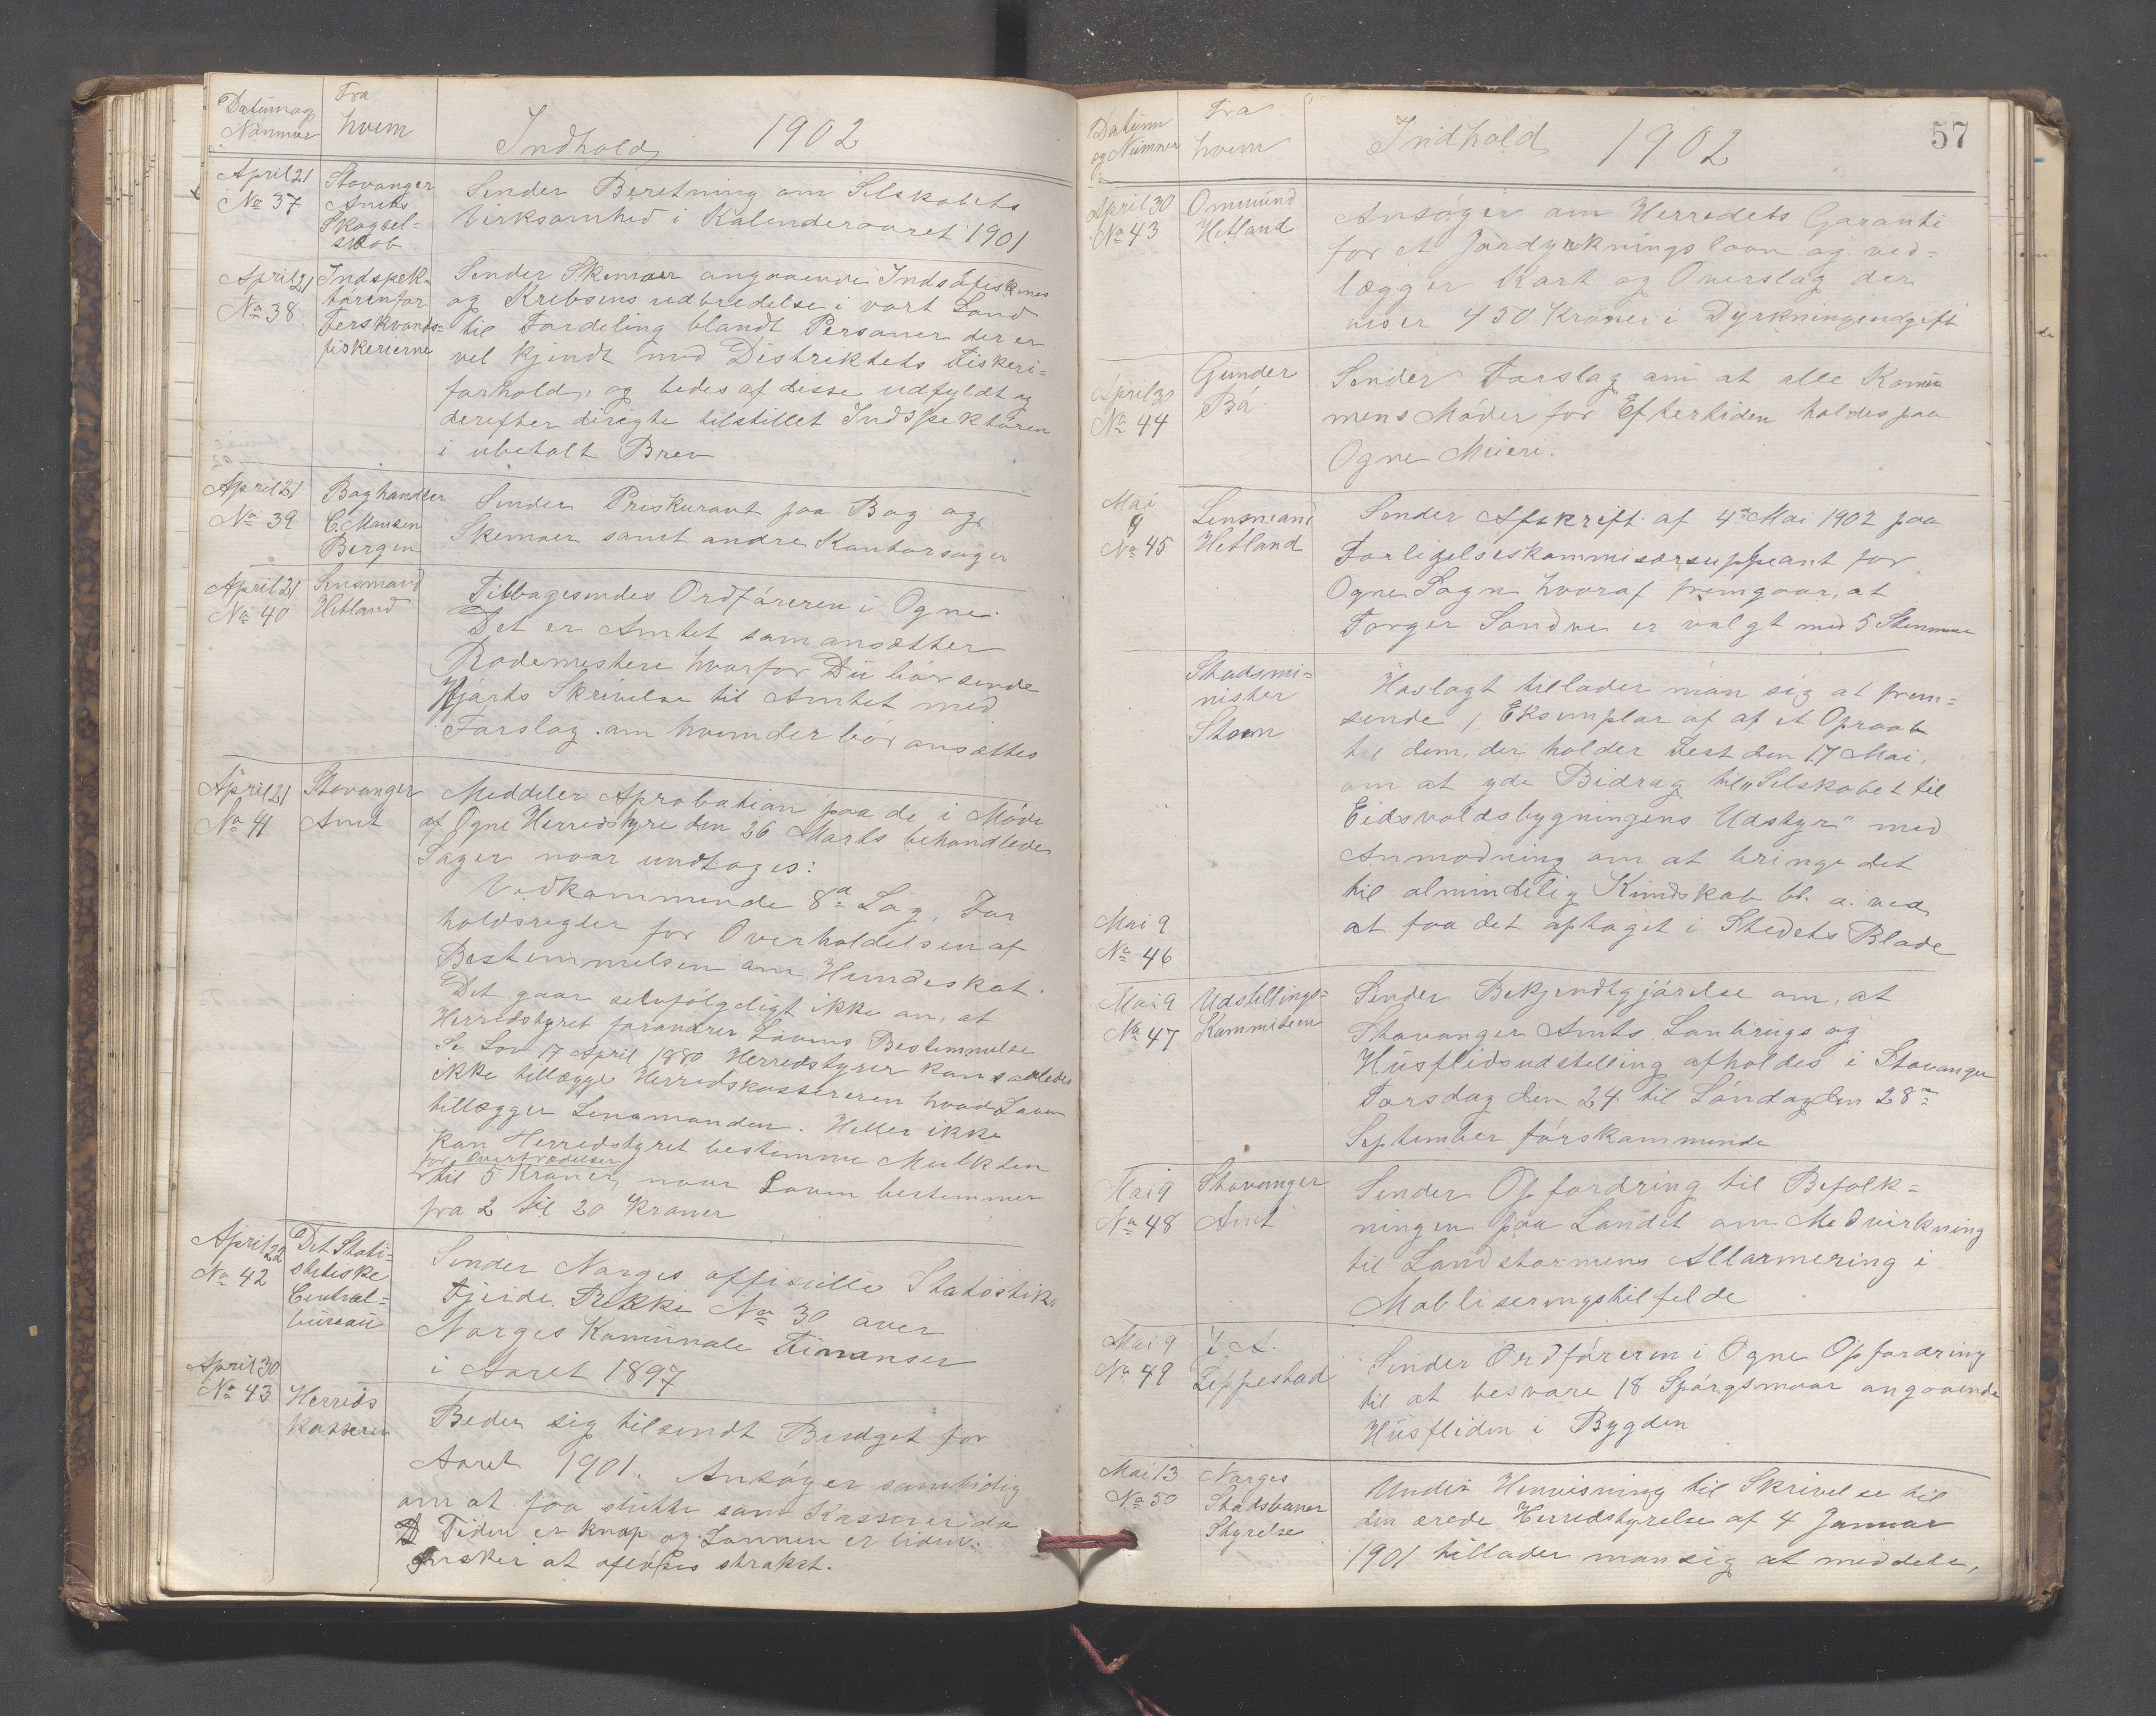 Datum og
Nummer
Fra
hvem
Indhold 1902
April 21
No 37
Stavanger
Amts
Skogsel-
skab
Sender Beretning om Selskabets
Virksomhed i Kalenderaaret 1901
April 21
No 38
Indspek-
tøren for
Ferskvands=
fiskerierne
Sender Skemaer angaaende Indsøfiskenes
og Krebsens udbredelse i vort Land
til Fordeling blandt Personer der er
vel kjendt med Distriktets Fiskeri=
forhold, og bedes af disse udfyldt og
derefter direkte tilstillet Indspektøren
i ubetalt Brev
April 21
No 39
Boghandler
C. Monsen
Bergen
Sender Priskurant paa Bog og
Skemaer samt andre Kontorsager
April 21
No 40
Lensmand
Hetland
Tilbagesendes Ordføreren i Ogne.
Det er Amtet som ansætter
Rodemestere hvorfor Du bør sende
Hjorts Skrivelse til Amtet med
Forslag om hvem der bør ansættes
April 21
No 41
Stavanger
Amt
Meddeler Aprobation paa de i Møde
af Ogne Herredstyre den 26 Marts behandlede
Sager naar undtages:
Vedkommende 8de Sag, For
holdsregler for Overholdelsen af
Bestemmelsen om Hundeskat.
Det gaar selvfølgeligt ikke an, at
Herredstyret forandrer Lovens Bestemmelse
Se Lov 17 April 1880 Herredstyrer kan saaledes
ikke tillægge Herredskassereren hvad Loven
tillægger Lensmanden. Heller ikke
kan Herredstyret bestemme Mulkten
for Overtrædelser
til 5 Kroner, naar Loven bestemmer
fra 2 til 20 Kroner
April 22
No 42
Det Stati-
stistiske
Central=
bureau
Sender Norges officielle Statistik
Fjerde Rekke No 30 over
Norges Komunale Finanser
i Aaret 1897
April 30
No 43
Herreds
Kasseren
Beder sig tilsendt Budget for
Aaret 1901. Ansøger samtidig
om at faa slutte som Kasserer da
Tiden er knap og Lønnen er liden.
Ønsker at afløses strakst.
57
Datum
og Nummer
Fra
hvem
Indhold 1902
April 30
No 43
Ommund
Hetland
Ansøger om Herredets Garanti
for et Jordyrkningslaan og ved=
lægger Kart og Overslag der
viser 450 Kroner i Dyrkningsudgift
April 30
No 44
Gunder
Bø
Sender Forslag om at alle Komu
nens Møder for Eftertiden holdes paa
Ogne Meieri.
Mai
9
No 45
Lensmand
Hetland
Sender Afskrift af 4de Mai 1902 paa
Forligelseskommisærsuppeant for
Ogne Sogn hvoraf fremgaar, at
Torger Sandve er valgt med 5 Stemmer
Mai 9
No 46
Stadsmi=
nister
Steen
Hoslagt tillader man sig at frem=
sende 1 Eksemplar af af et Opraab
til dem, der holder Fest den 17 Mai,
om at yde Bidrag til "Selskabet til
Eidsvoldsbygningens Udstyr" med
Anmodning om at bringe det
til almindelig Kundskab bl. a. ved
at faa det optaget i Stedets Blade
Mai 9
No 47
Udstillings=
Kommiteen
Sender Bekjendtgjørelse om, at
Stavanger Amts Lanbrugs og
Husflidsudstelling afholdes i Stavanger
Torsdag den 24 til Søndag den 28de
September førskommende
Mai 9
No 48
Stavanger
Amt
Sender Opfordring til Befolk=
ningen paa Landet om Medvirkning
til Landstormens Allarmering i
Mobliseringstilfelde
Mai 9
No 49
J. A.
Leppestad
Sender Ordføreren i Ogne Opfordring
til at besvare 18 Spørgsmaar angaaende
Husfliden i Bygden
Mai 13
No 50
Norges
Stadsbaner
Styrelse
Under Henvisning til Skrivelse til
den ærede Herredstyrelse af 4 Januar
1901 tillader man sig at meddele,